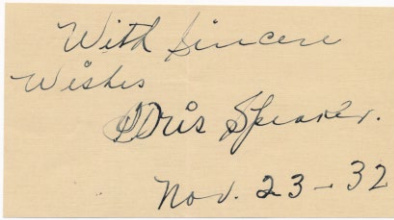 With Sincere
Wishes
Tris Speaker.
Nov. 23-32